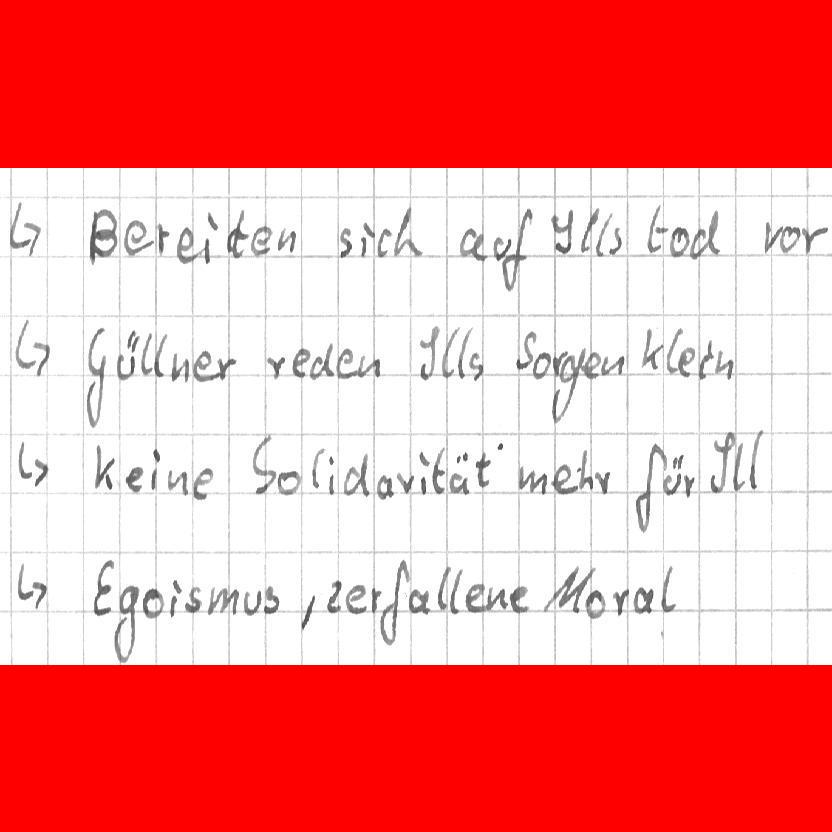 ↳ Bereiten sich auf Ills tod vor
↳ Güllner reden Ills Sorgen klein
↳ keine Solidarität mehr für Ill
↳ Egoismus, zerfallene Moral